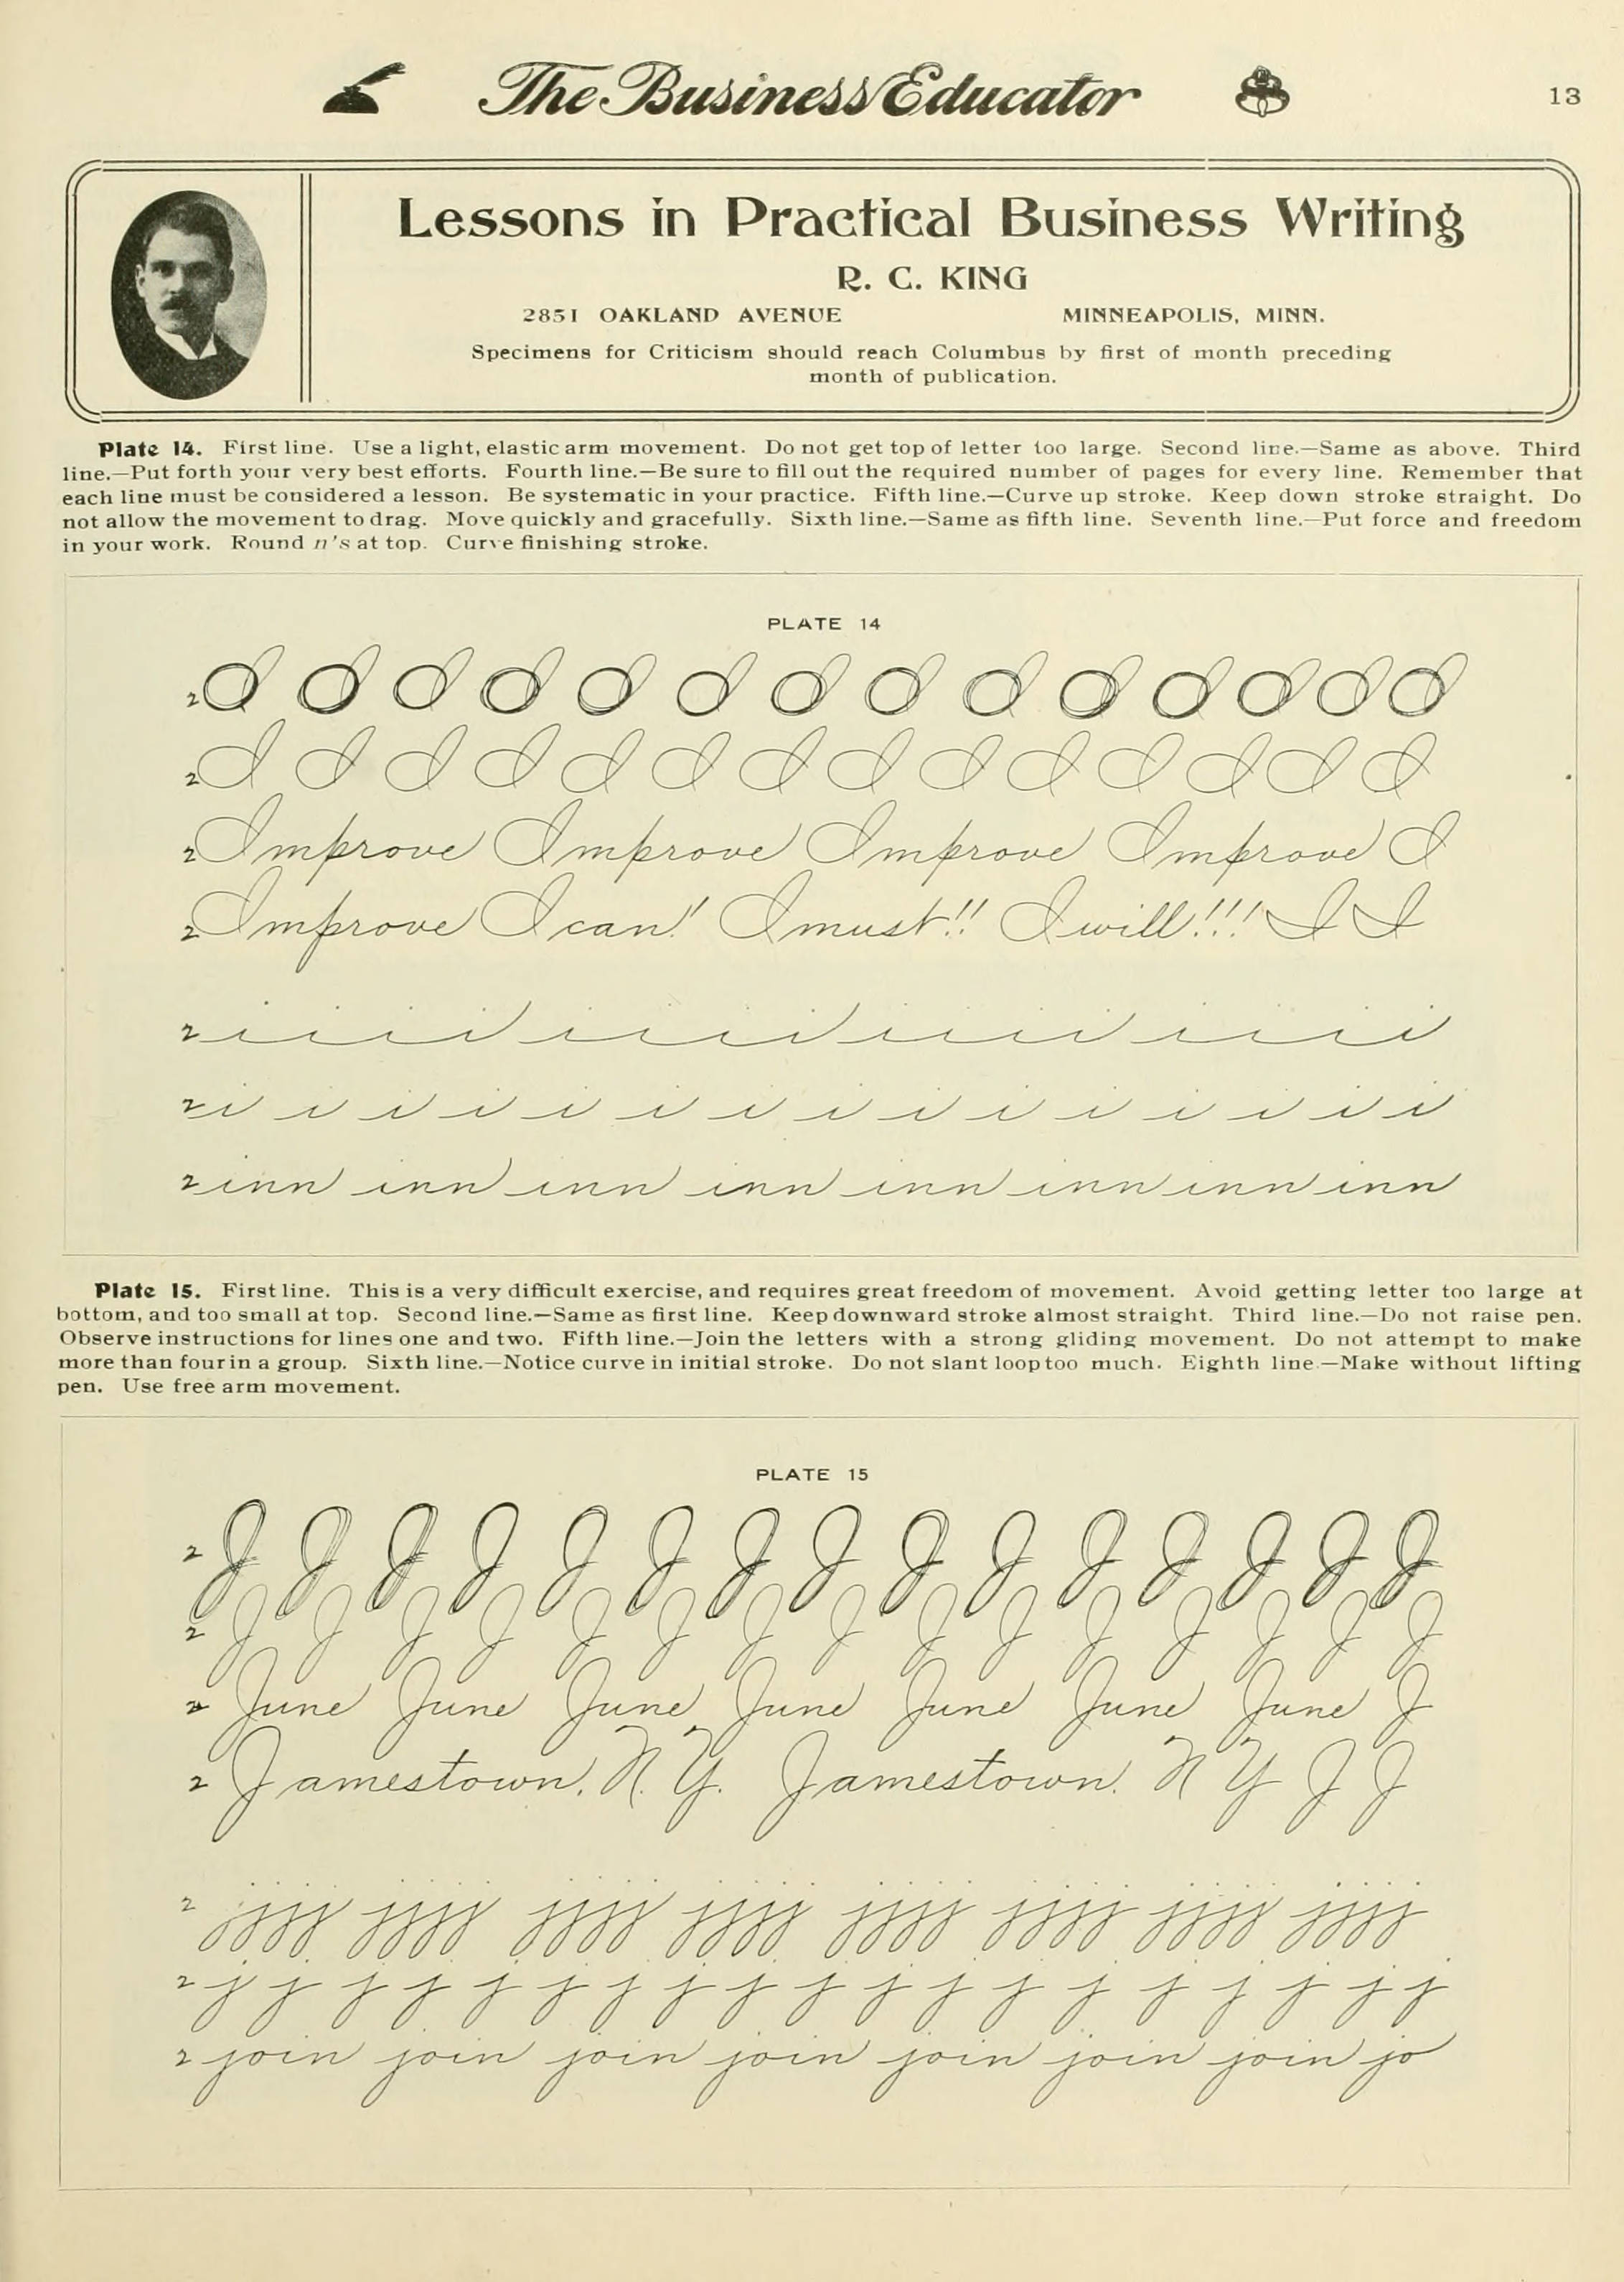 The Business Educator
13
Lessons in Practical Business Writing
R. C. KING
2851 OAKLAND AVENUE MINNEAPOLIS, MINN.
Specimens for Criticism should reach Columbus by first of month preceding
month of publication.
Plate 14. First line. Use a light, elastic arm movement. Do not get top of letter too large. Second line.—Same as above. Third
line.—Put forth your very best efforts. Fourth line.—Be sure to fill out the required number of pages for every line. Remember that
each line must be considered a lesson. Be systematic in your practice. Fifth line.—Curve up stroke. Keep down stroke straight. Do
not allow the movement to drag. Move quickly and gracefully. Sixth line.—Same as fifth line. Seventh line.—Put force and freedom
in your work. Round n's at top. Curve finishing stroke.
PLATE 14
2 I I I I I I I I I I I I I I
2 I I I I I I I I I I I I I I
2 Improve Improve Improve Improve I
2 Improve I can! I must!! I will!!! I I
2 i i i i i i i i i i i i i i i i
2 i i i i i i i i i i i i i i i
2 inn inn inn inn inn inn inn inn
Plate 15. First line. This is a very difficult exercise, and requires great freedom of movement. Avoid getting letter too large at
bottom, and too small at top. Second line.—Same as first line. Keep downward stroke almost straight. Third line.—Do not raise pen.
Observe instructions for lines one and two. Fifth line.—Join the letters with a strong gliding movement. Do not attempt to make
more than four in a group. Sixth line.—Notice curve in initial stroke. Do not slant loop too much. Eighth line.—Make without lifting
pen. Use free arm movement.
PLATE 15
2 J J J J J J J J J J J J J J J
2 J J J J J J J J J J J J J J J
2 June June June June June June June J
2 Jamestown, N. Y. Jamestown. N Y J J
2 jjjj jjjj jjjj jjjj jjjj jjjj jjjj jjjj
2 j j j j j j j j j j j j j j j j j j
2 join join join join join join join jo